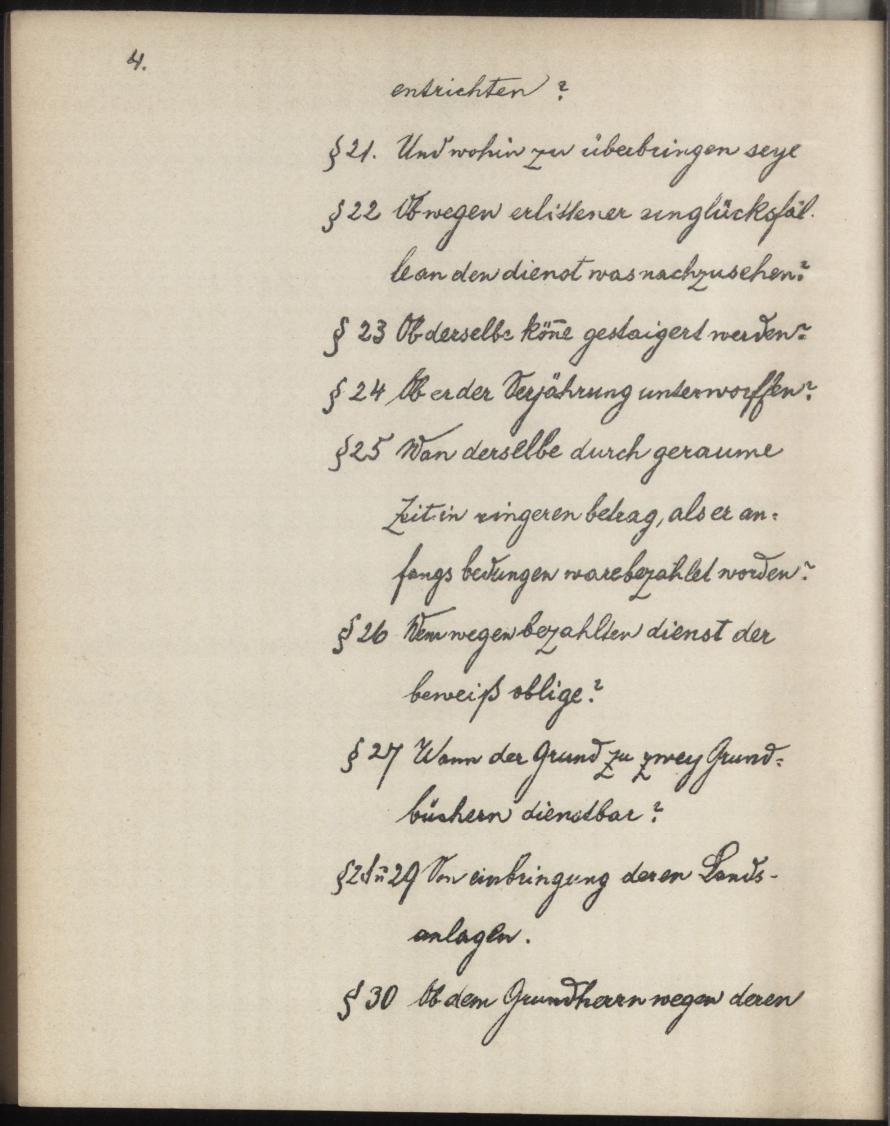 4.
entrichten?
§ 21. Und wohin zu überbringen seye
§ 22 Ob wegen erlittener unglücksfäl-
le an den dienst was nachzusehen?
§ 23 Ob derselbe kön̄e gestaigert werden?
§ 24 Ob er der Verjährung unterworffen?
§ 25 Wan derselbe durch geraume
Zeit in ringeren betrag, als er an-
fangs bedungen ware bezahlet worden?
§ 26 Wem wegen bezahlten dienst der
beweiß oblige?
§ 27 Wann der Grund zu zwey Grund-
büchern dienstbar?
§ 28 ū 29 Von einbringung deren Lands-
anlagen.
§ 30 Ob dem Grundherrn wegen deren